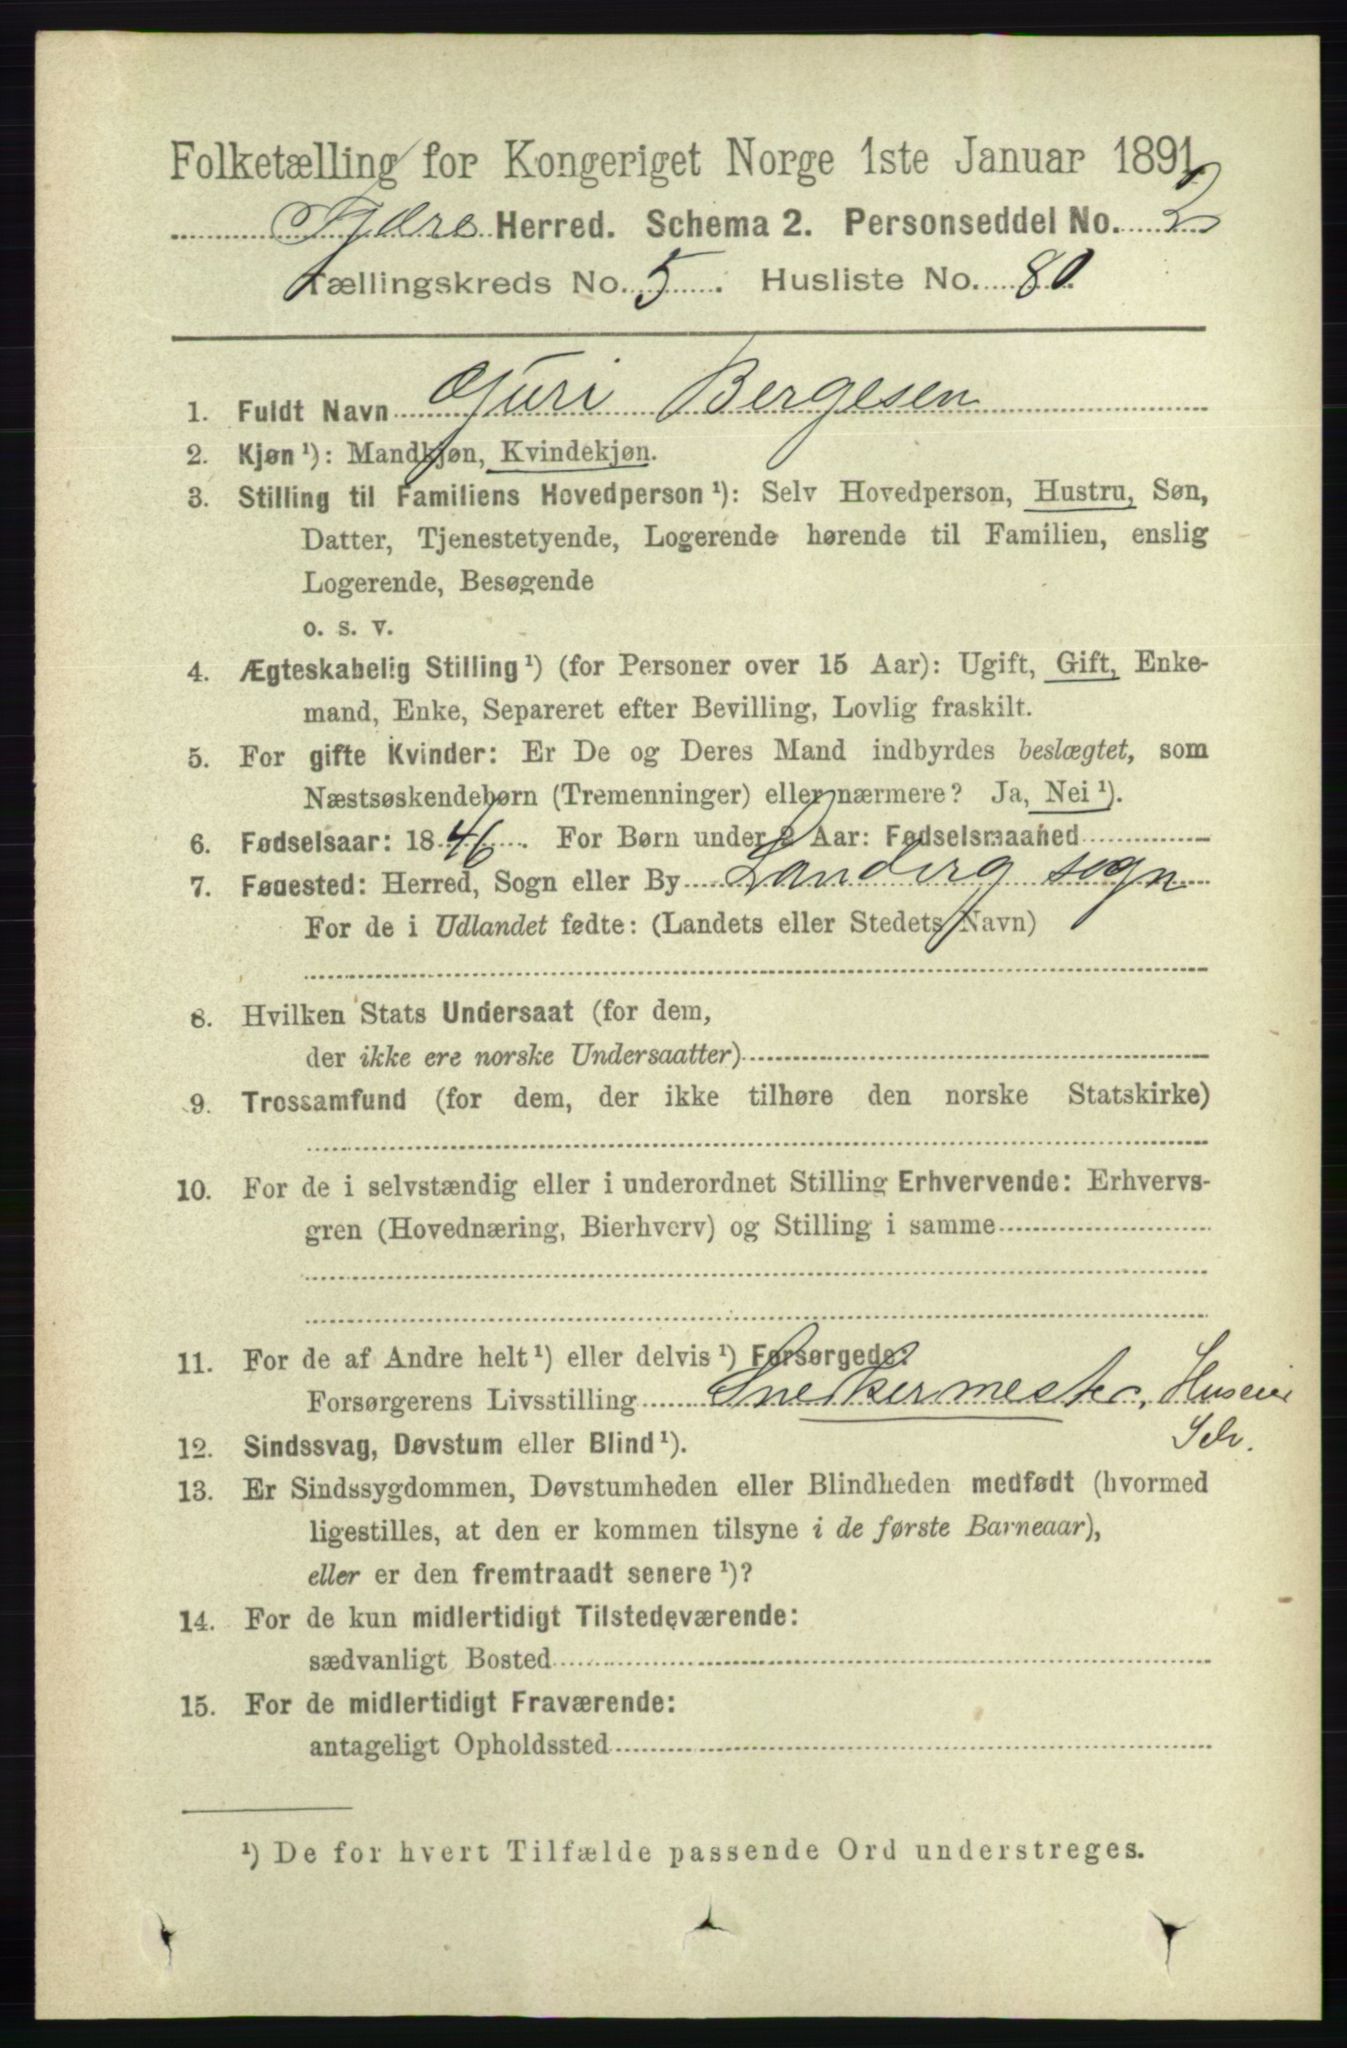 Folketælling for Kongeriget Norge 1ste Januar 1891.
Fjære Herred. Schema 2. Personseddel No. 2
Tællingskreds No. 5. Husliste No. 80.
1. Fuldt Navn Guri Bergesen
2. Kjøn ¹): Mandkjøn, Kvindekjøn.
3. Stilling til Familiens Hovedperson ¹): Selv Hovedperson, Hustru, Søn,
Datter, Tjenestetyende, Logerende hørende til Familien, enslig
Logerende, Besøgende
o. s. v.
4. Ægteskabelig Stilling ¹) (for Personer over 15 Aar): Ugift, Gift, Enke-
mand, Enke, Separeret efter Bevilling, Lovlig fraskilt.
5. For gifte Kvinder: Er De og Deres Mand indbyrdes beslægtet, som
Næstsøskendebørn (Tremenninger) eller nærmere? Ja, Nei ¹).
6. Fødselsaar: 1846. For Børn under 2 Aar: Fødselsmaaned
7. Føuested: Herred, Sogn eller By Landvig sogn
For de i Udlandet fødte: (Landets eller Stedets Navn)
8. Hvilken Stats Undersaat (for dem,
der ikke ere norske Undersaatter)
9. Trossamfund (for dem, der ikke tilhøre den norske Statskirke)
10. For de i selvstændig eller i underordnet Stilling Erhvervende: Erhvervs-
gren (Hovednæring, Bierhverv) og Stilling i samme
11. For de af Andre helt ¹) eller delvis ¹) Forsørgede:
Forsørgerens Livsstilling Snekkermester, Huseier
Selv.
12. Sindssvag, Døvstum eller Blind ¹).
13. Er Sindssygdommen, Døvstumheden eller Blindheden medfødt (hvormed
ligestilles, at den er kommen tilsyne i de første Barneaar),
eller er den fremtraadt senere ¹)?
14. For de kun midlertidigt Tilstedeværende:
sædvanligt Bosted
15. For de midlertidigt Fraværende:
antageligt Opholdssted
¹) De for hvert Tilfælde passende Ord understreges.